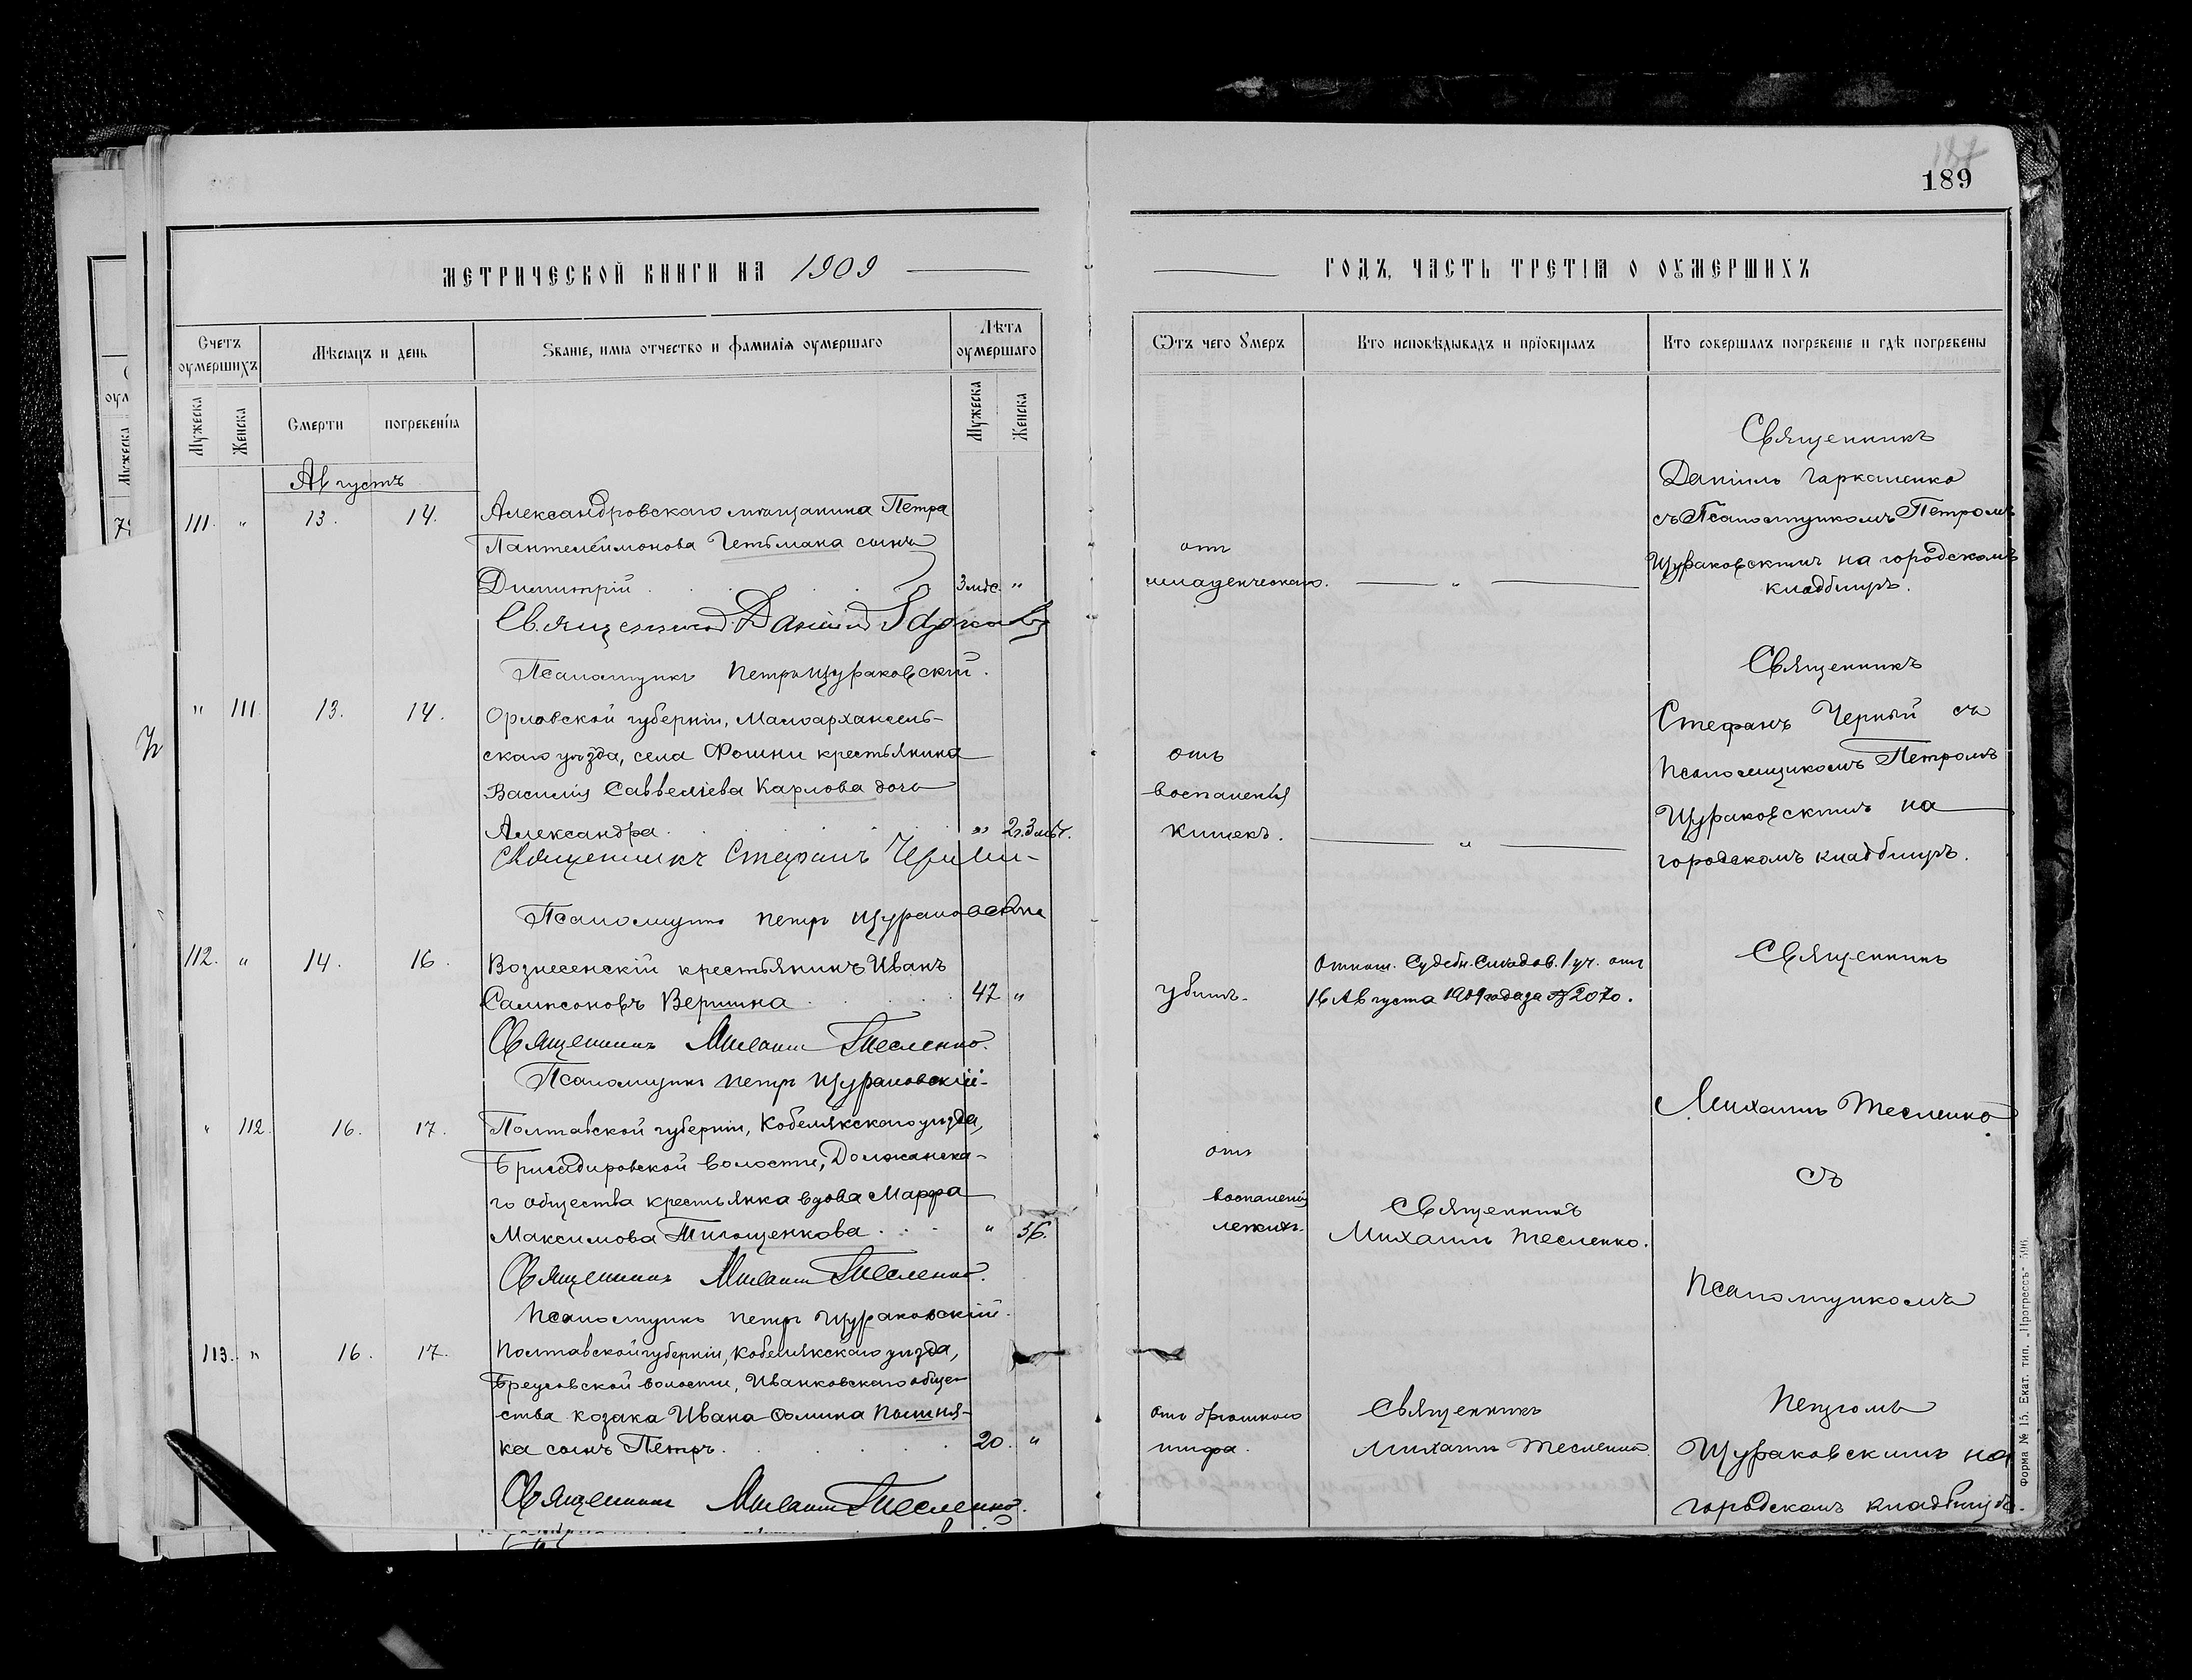 187
189
МЕТРИЧЕСКОЙ КНИГИ НА 1909
ГОДЪ, ЧАСТЬ ТРЕТІЯ О ОУМЕРШИХЪ
Счетъ оумершихъ
Мѣсяцъ и день
Званіе, имя отчество и фамилія оумершаго
Лѣта оумершаго
Ѿтъ чего Умеръ
Кто исповѣдывалъ и пріобщалъ
Кто совершалъ погребеніе и гдѣ погребены
Мужеска
Женска
Смерти
погребенія
Мужеска
Женска
Августъ
111. " 13. 14. Александровскаго мѣщанина Петра
Пантелеимонова Гетьмана сынъ
Димитрій 3 мѣс. "
отъ
младенческаго. — " —
Священникъ
Даніилъ Гаркаленко
съ Псаломщикомъ Петромъ
Щураковскимъ на городскомъ
кладбищѣ.
Священникъ Даніилъ
Псаломщикъ Петръ Щураковскій.
" 111. 13. 14. Орловской губерніи, Малоархангель-
скаго уѣзда, села Фошни крестьянина
Василія Саввеліева Карлова дочь
Александра " 2 г. 3 мѣс.
отъ
воспаленія
кишекъ. — " —
Священникъ
Стефанъ Черный съ
Псаломщикомъ Петромъ
Щураковскимъ на
городскомъ кладбищѣ.
Священникъ Стефанъ
Псаломщикъ Петръ Щураковскій
112. " 14. 16. Вознесенскій крестьянинъ Иванъ
Сампсоновъ Вершина 47 "
убитъ.
Отнош. Судебн. Слѣдов. 1 уч. отъ
16 Августа 1909 года за № 2070.
Священникъ
Священникъ Михаилъ Тесленко.
Псаломщикъ Петръ Щураковскій.
" 112. 16. 17. Полтавской губерніи, Кобелякскаго уѣзда,
Бригадировской волости, Должанска-
го общества крестьянка вдова Марфа
Максимова " 56.
отъ
воспаленія
легкихъ.
Священникъ
Михаилъ Тесленко.
Михаилъ Тесленко
съ
Священникъ Михаилъ Тесленко.
Псаломщикъ Петръ Щураковскій.
Псаломщикомъ
113. " 16. 17. Полтавской губерніи, Кобелякскаго уѣзда,
Бреусовской волости, Иванковскаго обще-
ства козака Ивана Ѳомина
ка сынъ Петръ. 20. "
отъ брюшного
тифа.
Священникъ
Михаилъ Тесленко.
Петромъ
Щураковскимъ на
городскомъ кладбищѣ.
Священникъ Михаилъ Тесленко.
Форма № 15. Екат. тип. „Прогрессъ" 596.